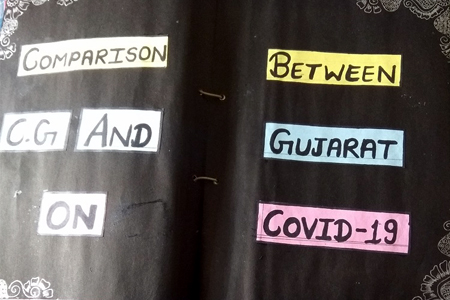 COMPARISON BETWEEN
C.G AND GUJARAT
ON COVID-19